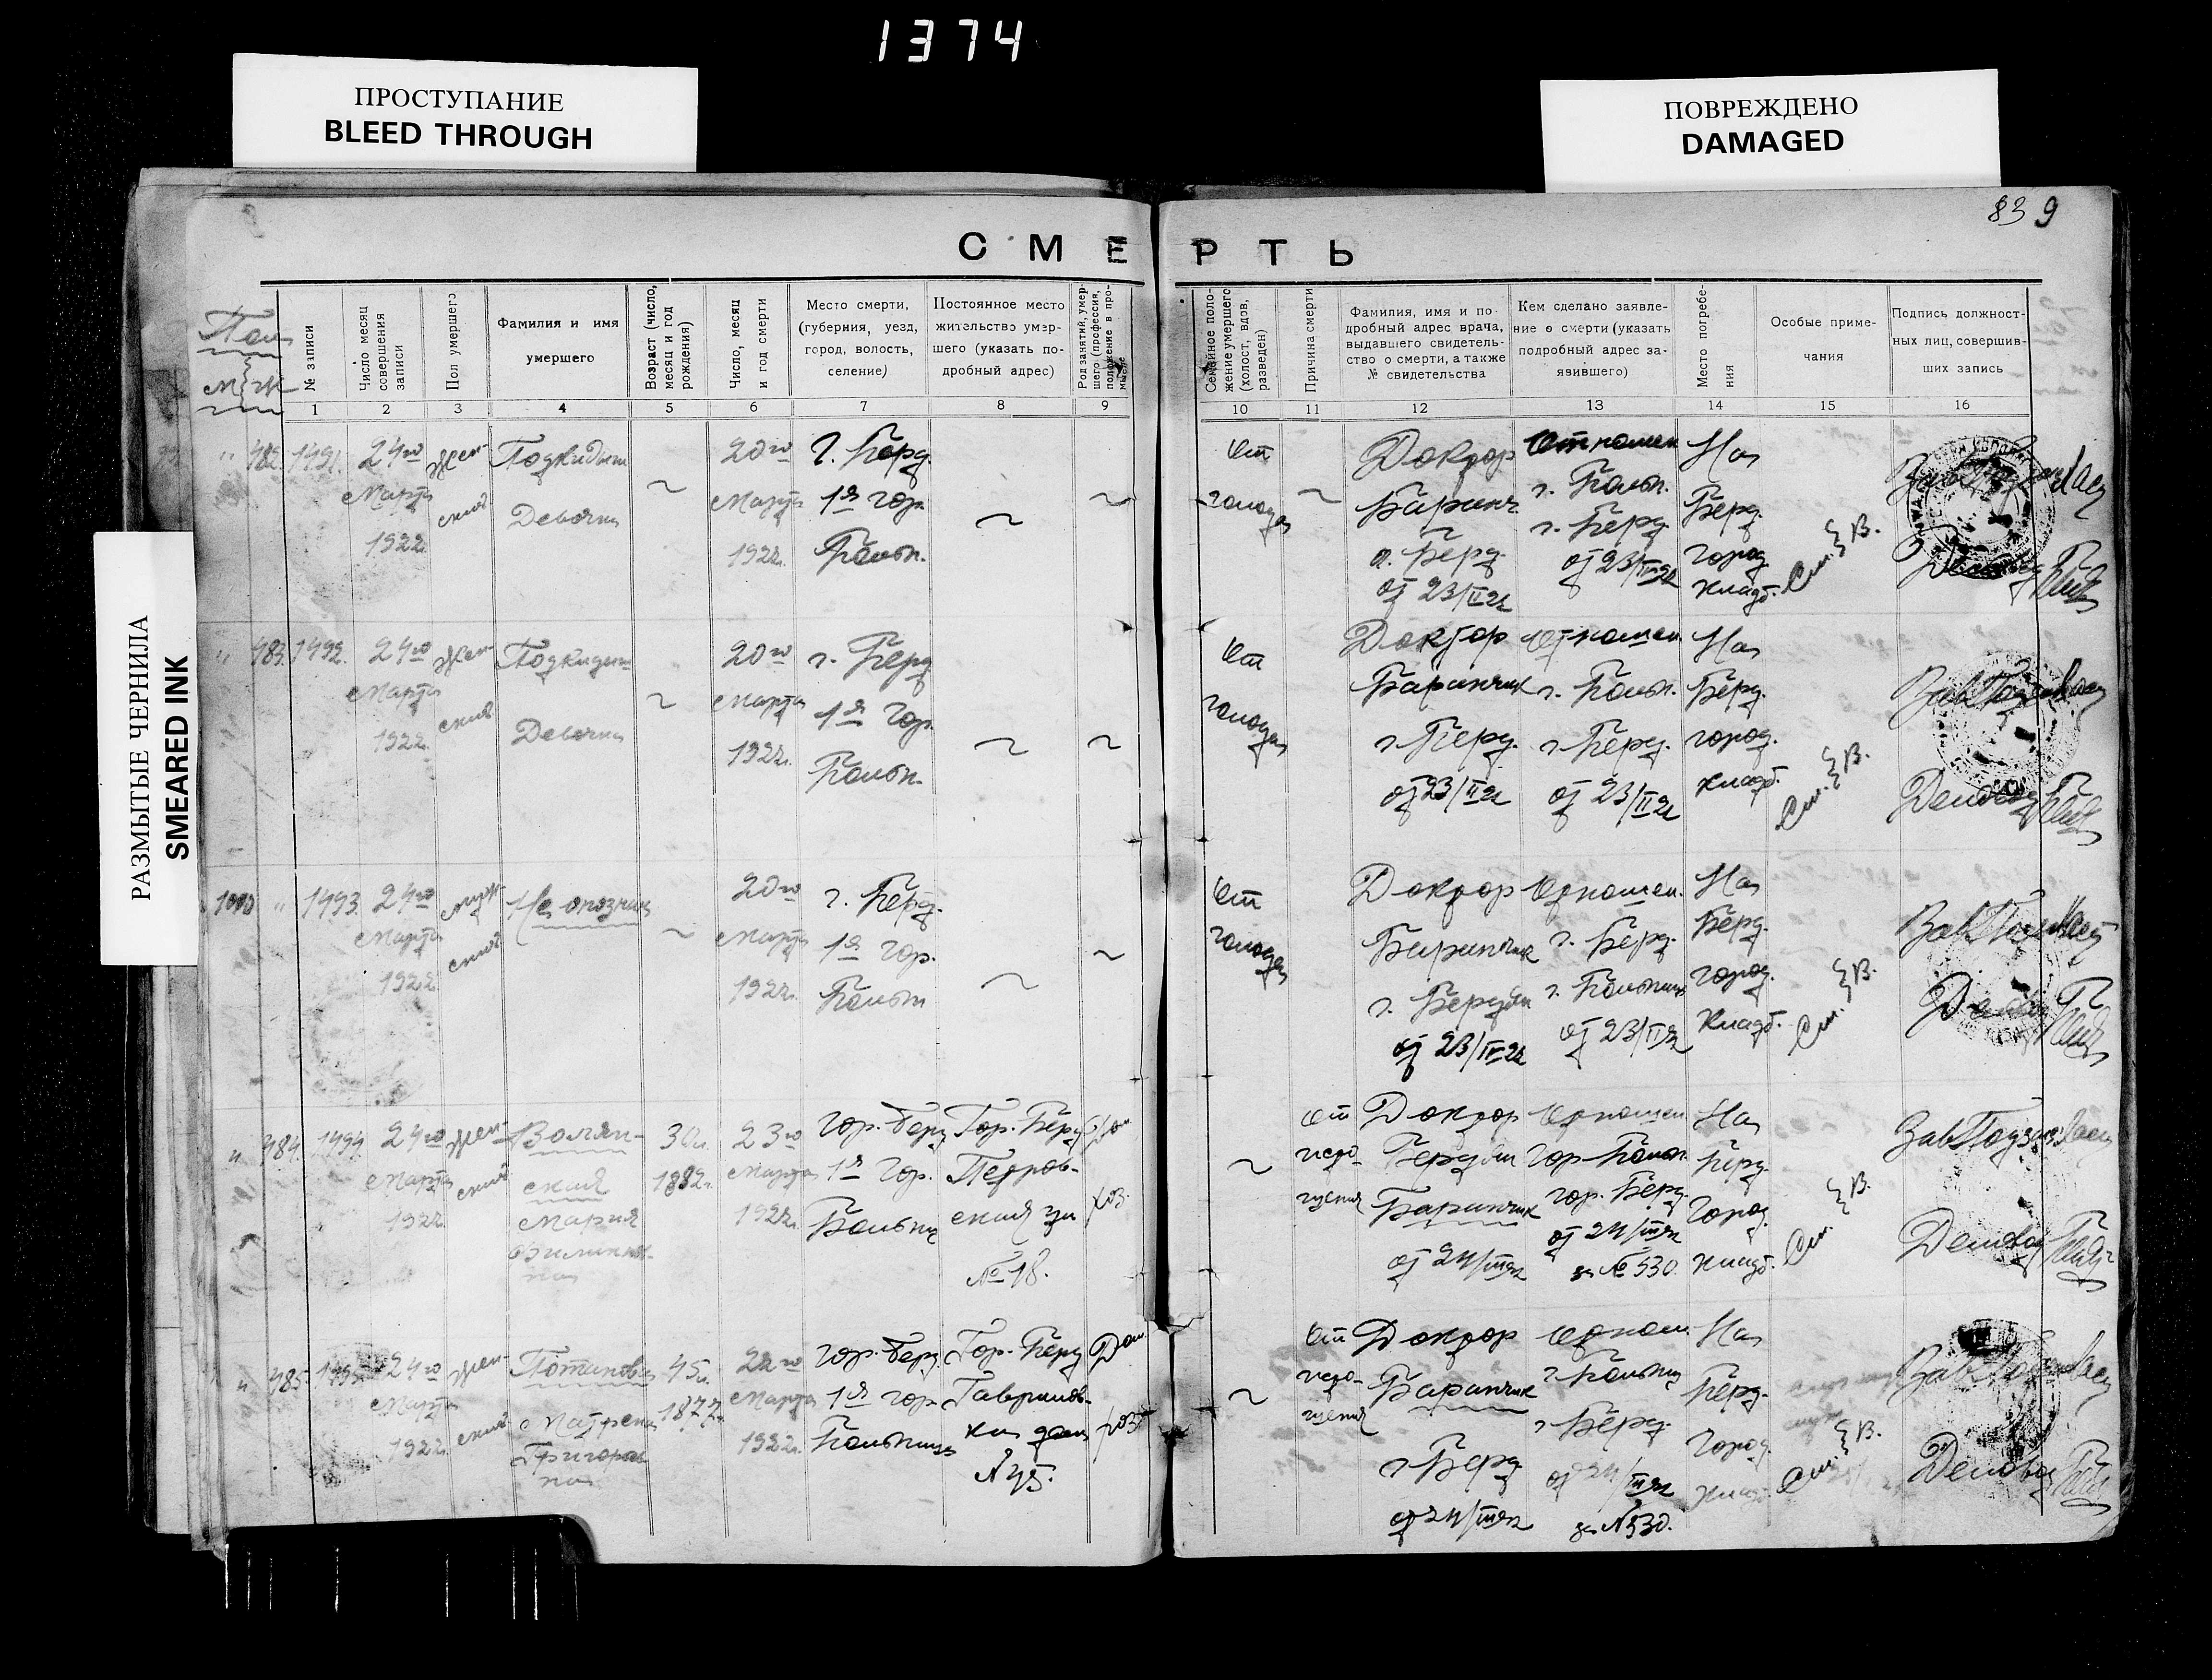 1374
ПРОСТУПАНИЕ
BLEED THROUGH
ПОВРЕЖДЕНО
DAMAGED
РАЗМЫТЫЕ ЧЕРНИЛА
SMEARED INK
83 9
СМЕРТЬ
Пол
м. ж
№ записи
Число месяц совершения записи
Пол умершего
Фамилия и имя
умершего
Возраст (число, месяц и год рождения)
Число, месяц и год смерти
Место смерти,
(губерния, уезд,
город, волость,
селение)
Постоянное место
жительство умер-
шего (указать по-
дробный адрес)
Род занятий, умер-
шего (профессия,
положение в про-
мысле
Семейное поло-
жение умершего
(холост, вдов,
разведен)
Причина смерти
Фамилия, имя и по-
дробный адрес врача,
выдавшего свидетель-
ство о смерти, а также
№ свидетельства
Кем сделано заявле-
ние о смерти (указать
подробный адрес за-
явившего)
Место погребе-
ния
Особые приме-
чания
Подпись должност-
ных лиц, совершив-
ших запись
1 2 3 4 5 6 7 8 9 10 11 12 13 14 15 16
" 482. 1491.
24го
Марта
1922
Жен-
ский
Подкидыш
Девочка
20го
Марта
1922г.
г. Берд.
1я гор.
Больн.
От
голода
Доктор
Баранчик
г. Берд.
от 23/
Отношен
г. Больн.
г. Берд.
от 23/
На
Берд.
город.
кладб.
См. В.
" 483. 1492.
24го
Марта
1922.
Жен-
ский
Подкидыш
Девочка
20го
Марта
1922г.
г. Берд
1я гор.
Больн.
От
голода
Доктор
Баранчик
г. Берд.
от 23/
Отношен.
г. Больн.
г. Берд.
от 23/
На
Берд.
город.
кладб.
См. В.
Зав
1010 " 1493.
24го
Марта
1922
Муж-
ской
Не опознан
20го
Марта
1922г.
г. Берд.
1я гор.
Больн
От
голода
Доктор
Баранчик
г. Бердян
от 23/
Отношен.
г. Берд.
г. Больниц
от 23/
На
Берд.
город.
кладб.
См. В.
" 484. 1494.
24го
Марта
1922
Жен-
ский
Волян-
ская
Мария
30л.
1892г.
23го
Марта
1922г.
гор. Берд
1я гор.
Больниц
Гор. Берд
Петров-
ская ул
№ 18.
Дом
хоз.
От
исто-
щения
Доктор
Бердян
Баранчик
от 24/III 22
Отношен
гор. Больн
гор. Берд.
от 24/III 22
за № 530.
На
Берд.
город.
кладб.
См. В.
" 485. 1495.
24го
Марта
1922
Жен-
ский
Потапова
Матрена
Григорьев
на
45л.
1877г.
22го
Марта
1922г.
гор. Берд
1я гор.
Больница
Гор. Берд
Гавринов-
ка дом
№ 45.
Дом
хоз
От
исто-
щения
Доктор
Баранчик
г. Берд
от 24/III 22
Отнош.
г. Больниц
г. Берд.
от 24/III 22
за № 530.
На
Берд.
город.
кладб.
См. В.